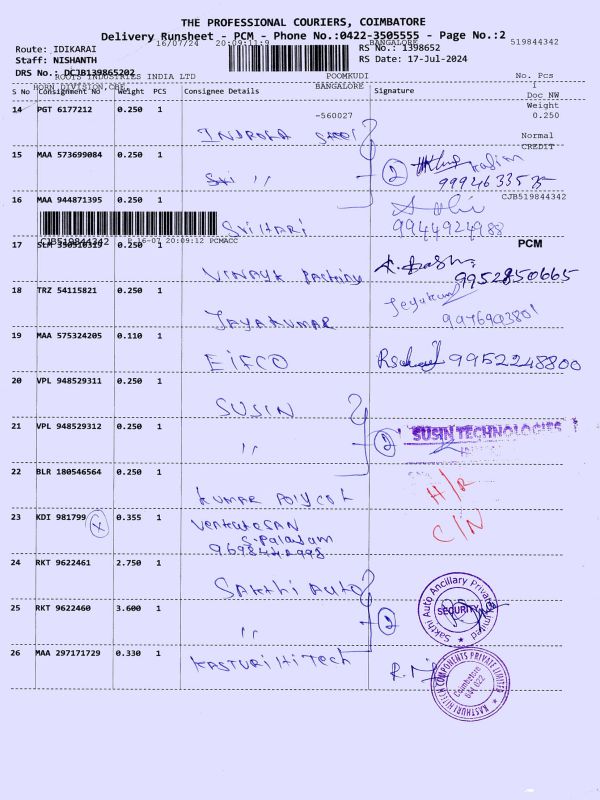 THE PROFESSIONAL COURIERS, COIMBATORE
Delivery Runsheet - PCM - Phone No.:0422-3505555 - Page No.:2
16/07/24 20:09:11:9 BANGALORE 519844342
Route: IDIKARAI RS No.: 1398652
Staff: NISHANTH RS Date: 17-Jul-2024
DRS No.: DCJB139865202
ROOTS INDUSTRIES INDIA LTD POOMKUDI No. Pcs
HORN DIVISION,CBE BANGALORE 1
S No Consignment No Weight PCS Consignee Details Signature Doc NW
Weight
14 PGT 6177212 0.250 1 -560027 0.250
Normal
CREDIT
15 MAA 573699084 0.250 1
Sri " 2
16 MAA 944871395 0.250 1 CJB519844342
Srihari 9944924988
CJB519844342 P 16-07 20:09:12 PCMACC
17 SLM 350510319 0.250 1 PCM
VINAYK 9952850665
18 TRZ 54115821 0.250 1 Jeyakumar
JAYAKUMAR
19 MAA 575324205 0.110 1
EIFCO 9952248800
20 VPL 948529311 0.250 1
SUSIN
21 VPL 948529312 0.250 1 SUSIN TECHNOLOGIES
" 2
22 BLR 180546564 0.250 1 H/R
KUMAR
23 KDI 981799 X 0.355 1 C/N
Venkatesan
S.Palayam
24 RKT 9622461 2.750 1
Sakthi Auto
Sakthi Auto Ancillary Private Limited
SECURITY
25 RKT 9622460 3.600 1
" 2
26 MAA 297171729 0.330 1
Kasturi Hi Tech
KASTHURI HITECH COMPONENTS PRIVATE LIMITED
Coimbatore
641 022